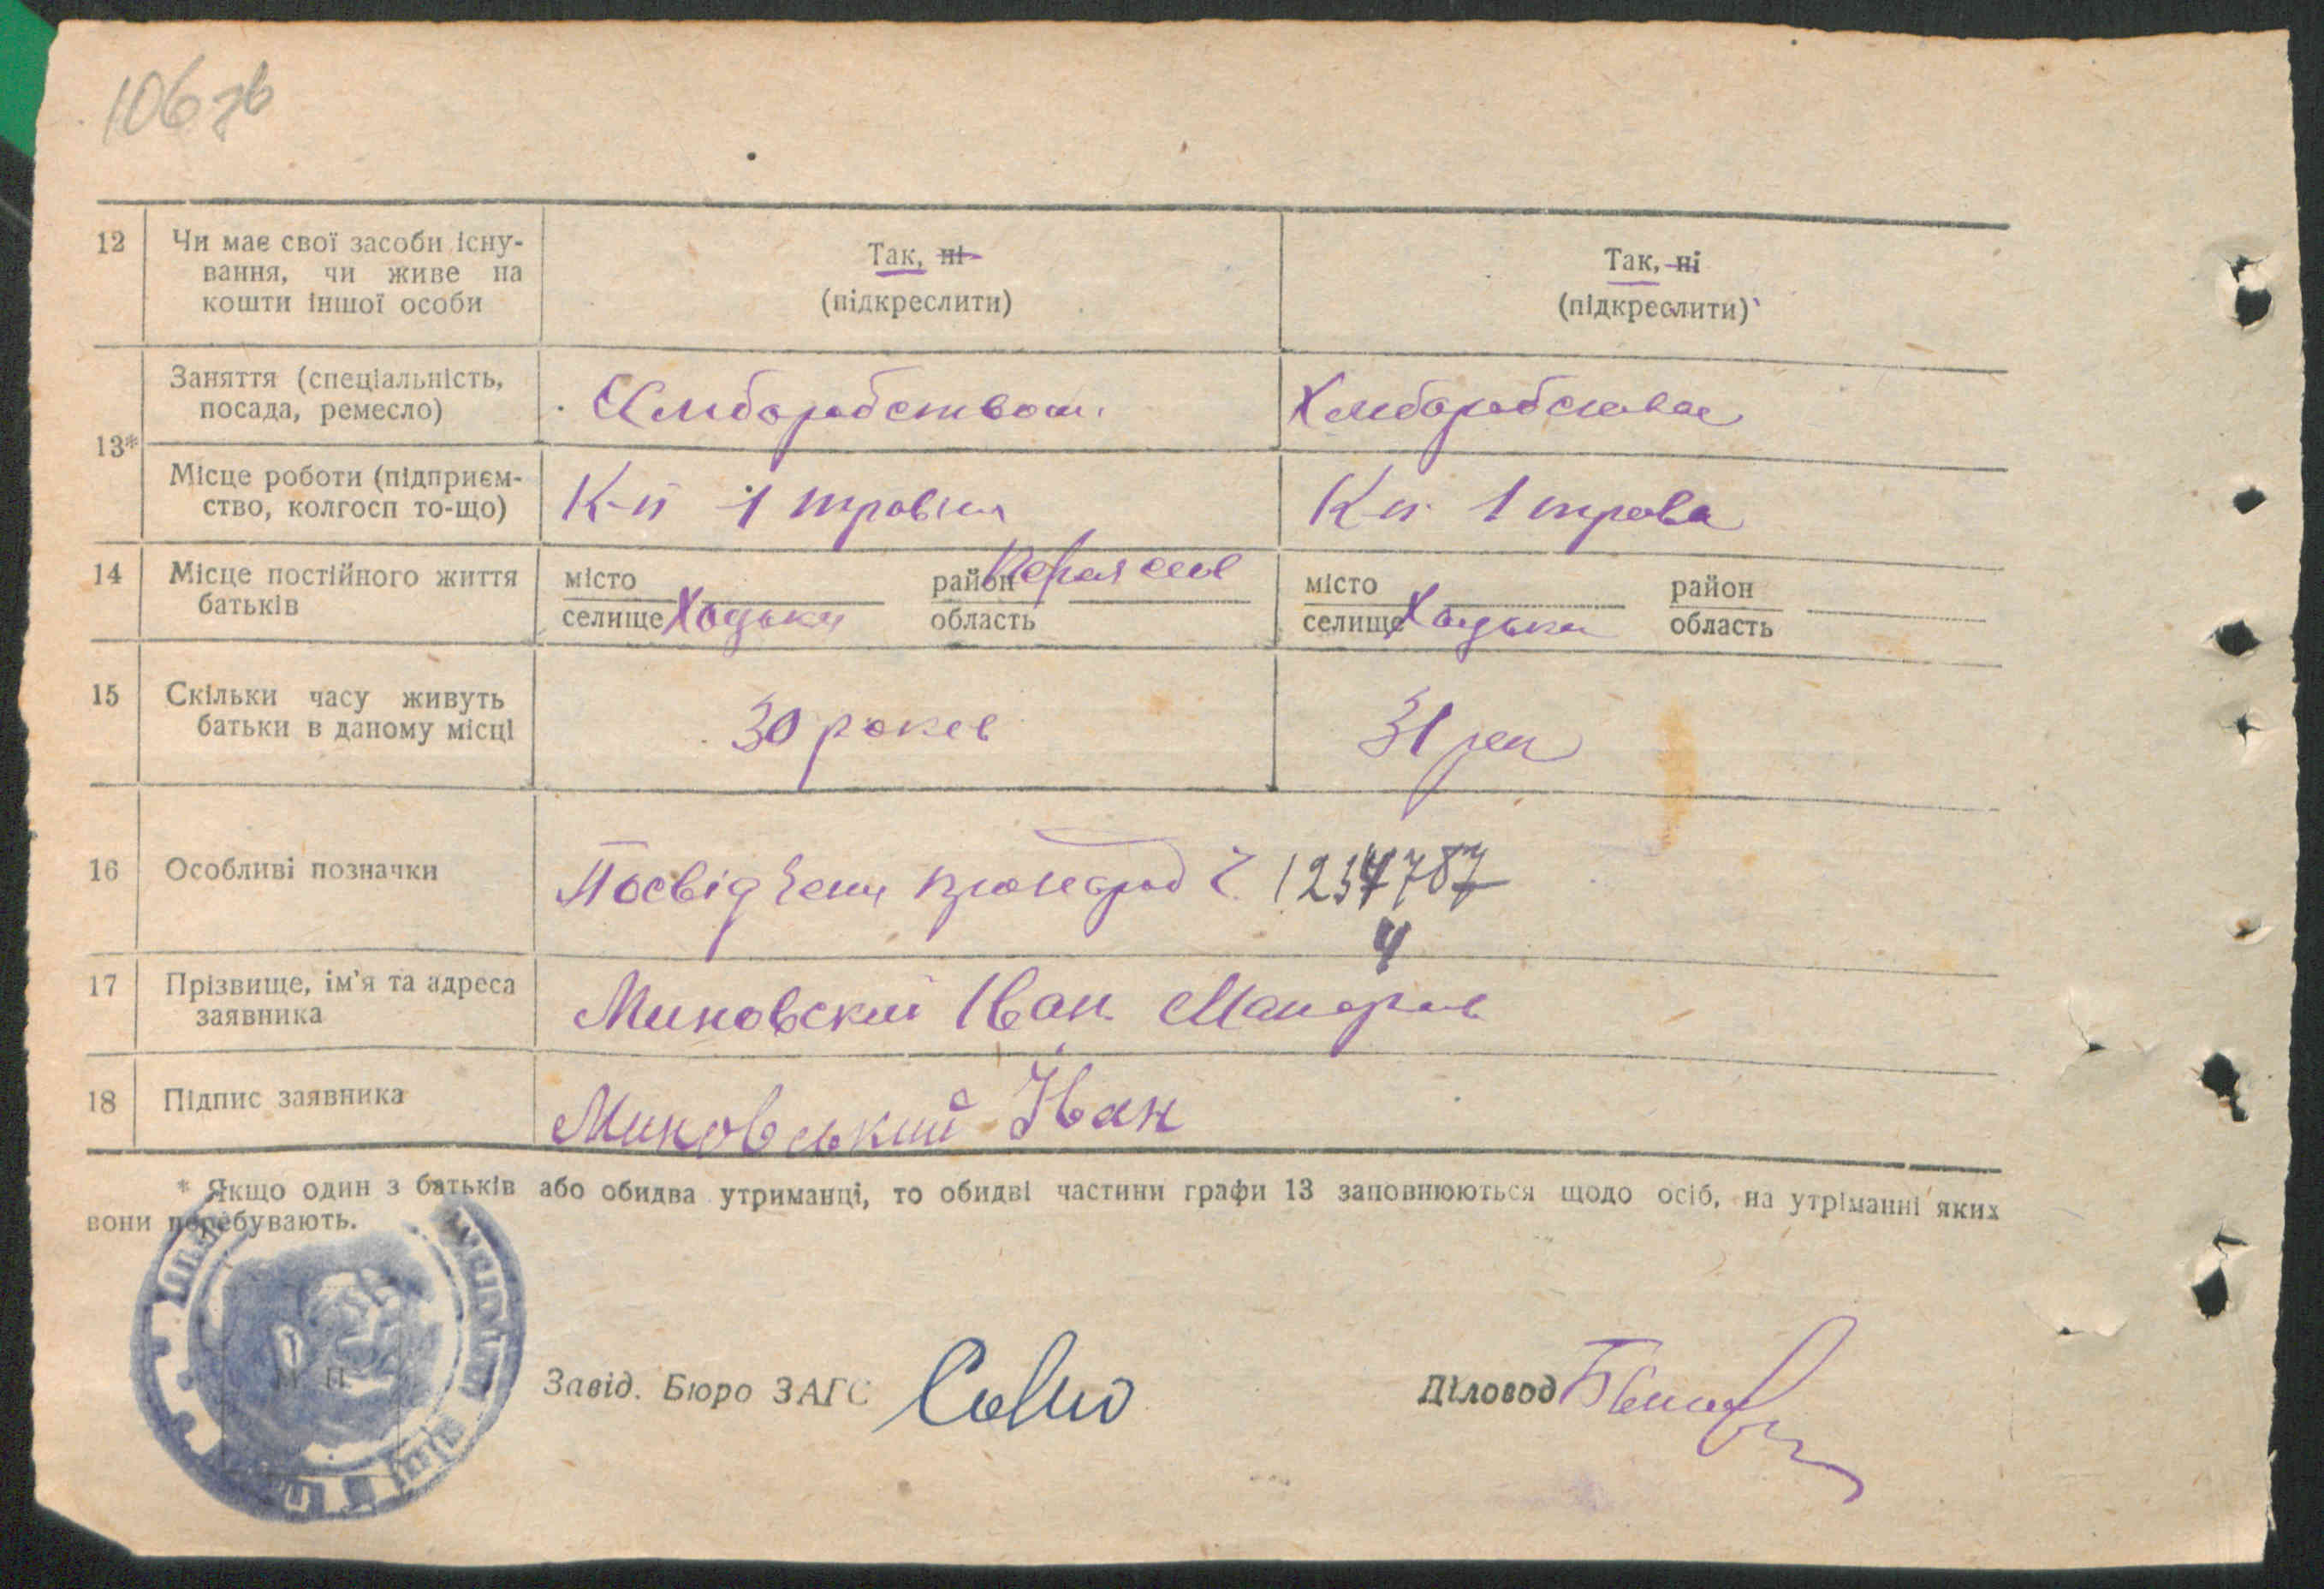 106 зв
12 Чи має свої засоби існу-
вання, чи живе на
кошти іншої особи
Так, ні
(підкреслити)
Так, ні
(підкреслити)
13*
Заняття (спеціальність,
посада, ремесло)
Хліборобством
Місце роботи (підприєм-
ство, колгосп то-що)
К-п 1 травня
К-п 1 трав
14 Місце постійного життя
батьків
місто
селище Хоцьки
район
область
місто
селище Хоцьки
район
область
15 Скільки часу живуть
батьки в даному місці
30 років
31 рік
16 Особливі позначки
Посвідчення 1234787
4
17 Прізвище, ім'я та адреса
заявника
Миновский Іван
18 Підпис заявника
Миновський Іван
* Якщо один з батьків або обидва утриманці, то обидві частини графи 13 заповнюються щодо осіб, на утріманні яких
вони перебувають.
М. П.
Завід. Бюро ЗАГС
Діловод